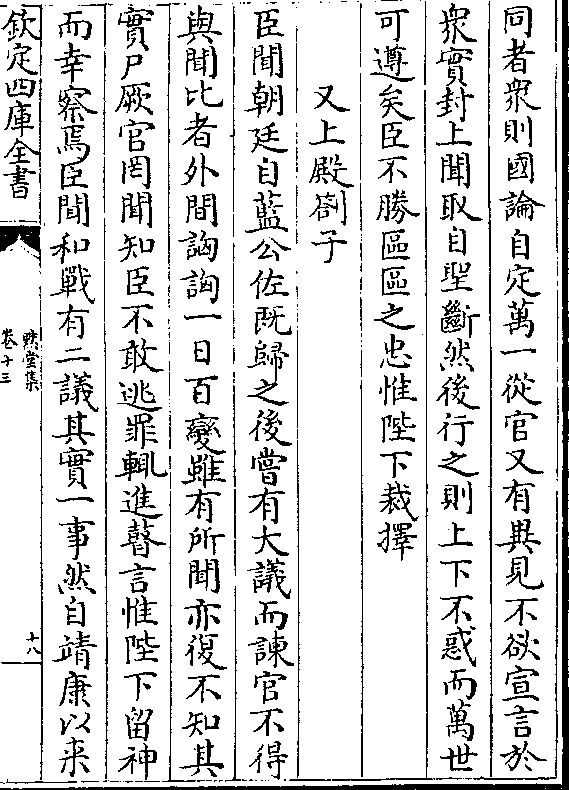 同者衆則國論自定萬一從官又有異見不欲宣言於
衆實封上聞取自聖斷然後行之則上下不惑而萬世
可遵矣臣不勝區區之忠惟陛下裁擇
又上殿劄子
臣聞朝廷自藍公佐既歸之後嘗有大議而諫官不得
與聞比者外間詾詾一日百變雖有所聞亦復不知其
實尸厥官罔聞知臣不敢逃罪輒進瞽言惟陛下留神
而幸察焉臣聞和戰有二議其實一事然自靖康以来
欽定四庫全書
卷十三
十八